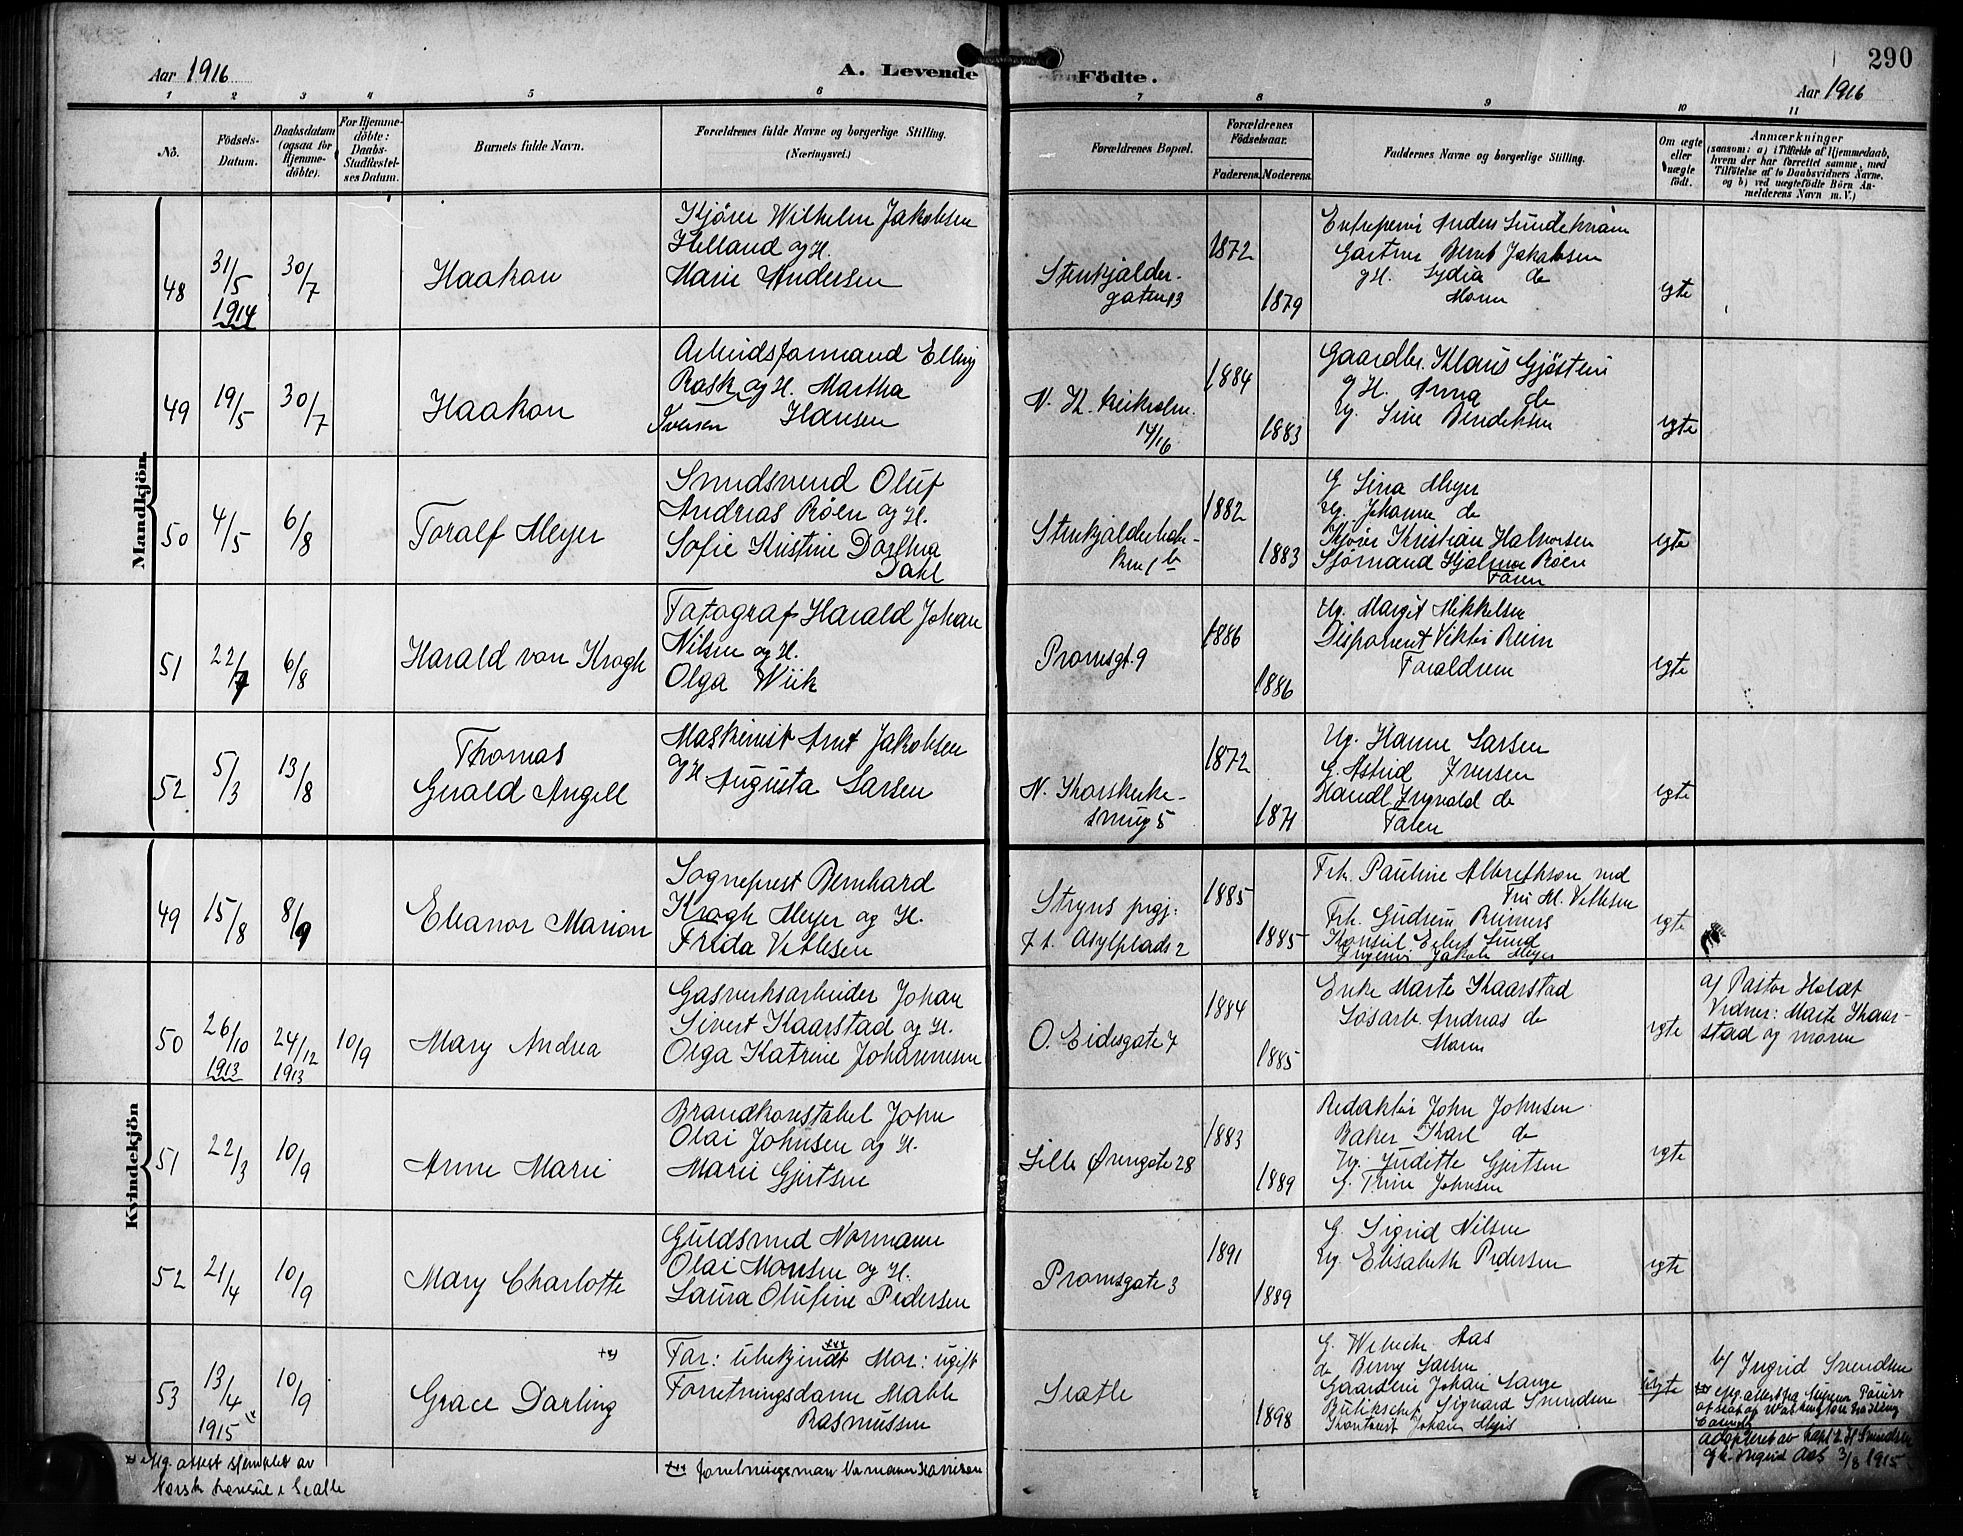 Aar 1916
A. Levende
Födte.
290
Aar 1916
1 2 3 4 5 6 7 8 9 10 11
No.
Födsels-
Datum.
Daabsdatum
(ogsaa for
Hjemme-
döbte).
For Hjemme-
döbte:
Daabs-
Stadfæstel-
ses Datum.
Barnets fulde Navn.
Forældrenes fulde Navne og borgerlige Stilling.
(Næringsvei.)
Forældrenes Bopæl.
Forældrenes
Födselsaar.
Faderens.
Moderens.
Faddernes Navne og borgerlige Stilling.
Om ægte
eller
uægte
födt.
Anmærkninger
(saasom: a) i Tilfælde af Hjemmedaab,
hvem der har forrettet samme, med
Tilföielse af to Daabsvidners Navne.
og b) ved uægtefödte Börn An-
melderens Navn m. V.)
Mandkjön.
48
31/5
1914
30/7
Haakon
Kjører Wilhelm Jakobsen
Helland og H.
Marie Andersen
Stenkjælder-
gaten 13
1872
1879
Anders
Gartner Bernt Jakobsen
g H. Lydia do
Moren
egte
49
19/5
30/7
Haakon
Arbeidsformand Elling
Rask og H. Martha
Iversen Hansen
14/16
1884
1883
Gaardbr. Klaus
g H. Anna do
Ug. Sine Bendiksen
egte
50
4/5
6/8
Toralf Meyer
Smedsvend Oluf
Andreas Røen og H.
Sofie Kristine Dorthea
Dahl
1882
1883
G Sina Meyer
Ug. Johanne do
Kjører Kristian Halvorsen
Sjømand Hjalmar Røen
Faren
egte
51
22/7
6/8
Harald von Krogh
Fotograf Harald Johan
Nilsen og H.
Olga Wiik
Promsgt. 9
1886
1886
Ug. Margit Mikkelsen
Disponent Viktor Reim
Forældrene
egte
52
5/3
13/8
Thomas
Gerald Angell
Maskinist Arnt Jakobsen
g H Augusta Larsen
N. Korskirke-
smug 5
1872
1871
Ug. Hanne Larsen
G. Astrid Iversen
Handl. Ingvald do
Faren
egte
Kvindekjön
49
15/8
8/9
Eleanor Marion
Sogneprest Bernhard
Krogh Meyer og H.
Frida Vetlesen
Stryns prgj:
f. t. Asylplads 2
1885
1885
Frk. Pauline Albrethson ved
Fru M. Vetlesen
Frk. Gudrun Reimers
Konsul Eilert Lund
Ingeniør Jakob Meyer
egte
50
26/10
1913
24/12
1913
10/9
Mary Andrea
Gasverksarbeider Johan
Sivert Kaarstad og H.
Olga Katrine Johannesen
O. Eidesgate 7
1884
1885
Enke Marte Kaarstad
Løsarb. Andreas do
Moren
egte
a/ Pastor Holdt
Vidner: Marte Kaar-
stad og moren
51
22/3
10/9
Anne Marie
Brandkonstabel John
Olai Johnsen og H.
Marie Gjertsen
Lille Øvregate 28
1883
1889
Redaktør John Johnsen
Baker Karl do
Ug. Juditte Gjertsen
G. Trine Johnsen
egte
52
21/4
10/9
Mary Charlotte
Guldsmed Normann
Olai Monsen og H.
Laura Olufine Pedersen
Promsgate 3
1891
1889
G. Sigrid Nilsen
Ug. Elisabeth Pedersen
egte
53
13/4
1915
10/9
Grace Darling
Far: ubekjendt Mor: ugift
Forretningsdame Mable
Rasmussen
Seatle
1898
G. Aas
do Larsen
Johan Lange
Sigvard Svendsen
Johan
uegte
b/ Ingrid Svendsen
adopteret av Kapt. Svendsen
g H. Ingrid Aas 3/8 1915
Ifлg. attest stemplet av
Norsk konsul i Seatle
xxx forretningsman Normann Harrison